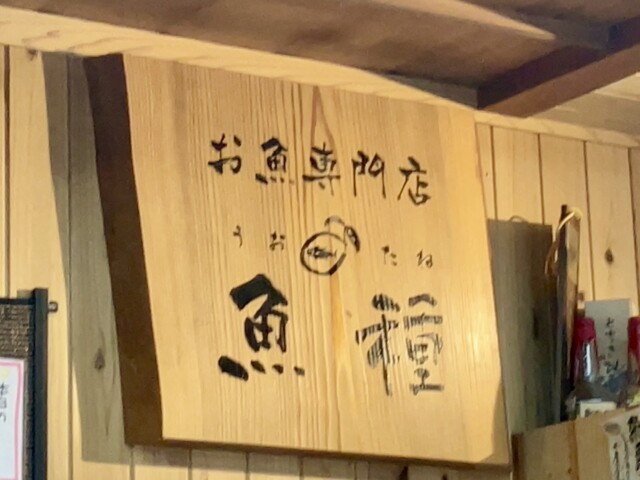 お魚専門店
うお たね
魚種